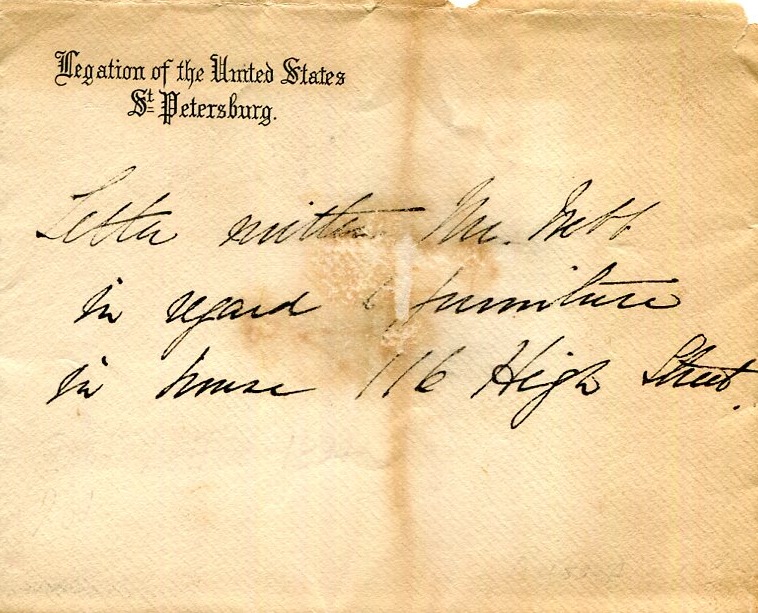 Legation of the United States
St. Petersburg.
Letter written Mr. Webb
in regard furniture
in house 116 High Street.